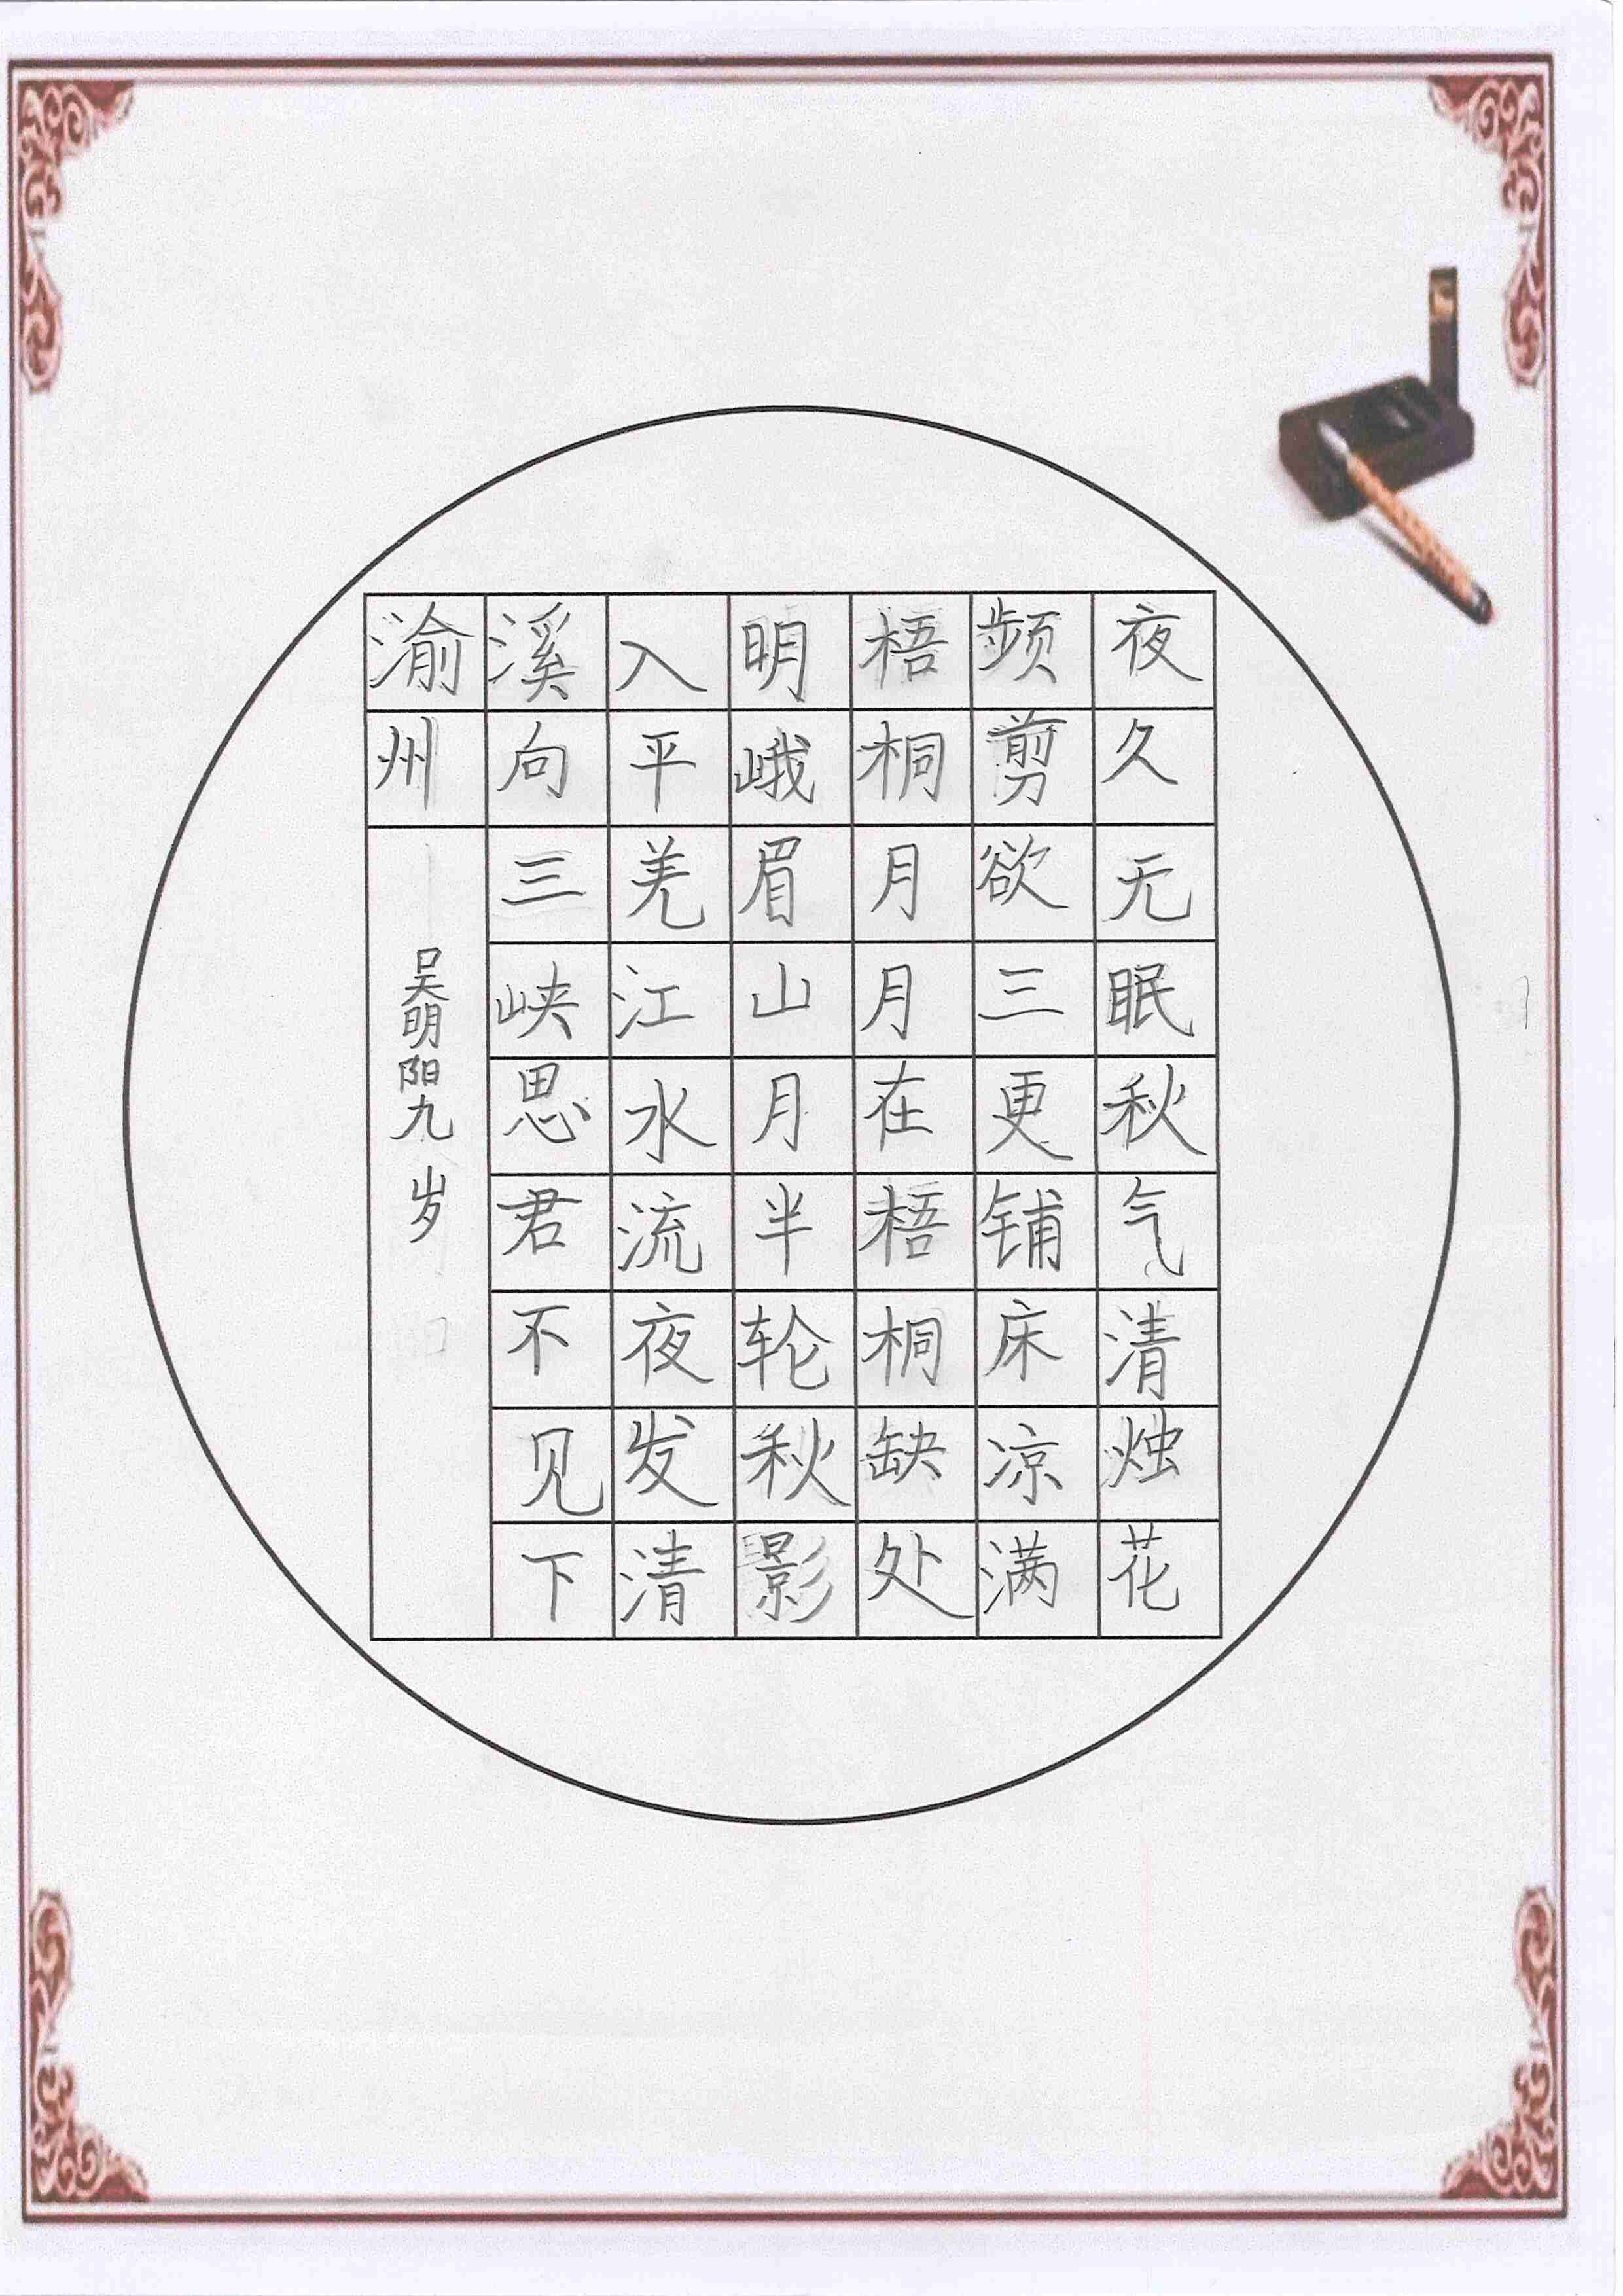 夜久无眠秋气清烛花
频剪欲三更铺床凉满
梧桐月月在梧桐缺处
明峨眉山月半轮秋影
入平羌江水流夜发清
溪向三峡思君不见下
渝州
吴明阳九岁